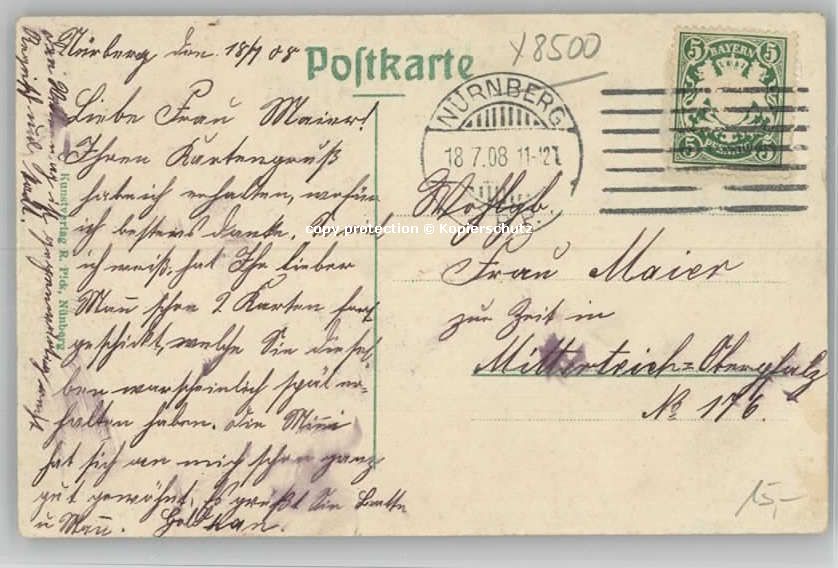 Nürberg den 18/7 08
Postkarte
X8500
Liebe Frau Maier!
Ihren Kartengruß
habe ich erhalten, wofür
ich bestens danke. Soviel
ich weiß, hat Ihr lieber
Mann schon 2 Karten
geschickt, welche Sie diesel-
ben warscheinlich spät er-
halten haben. Die Minni
hat sich an mich schon ganz
gut gewöhnt. Es grüßt Sie
u Mann.
Kunstverlag R. Pick, Nürnberg
NÜRNBERG
18 7.08 11-12
BAYERN
5 5
PFENNIG
5 5
Wohlgeb.
Frau Maier
zur Zeit in
Mitterteich=Oberpfalz
No 176.
15,-
copy protection © Kopierschutz